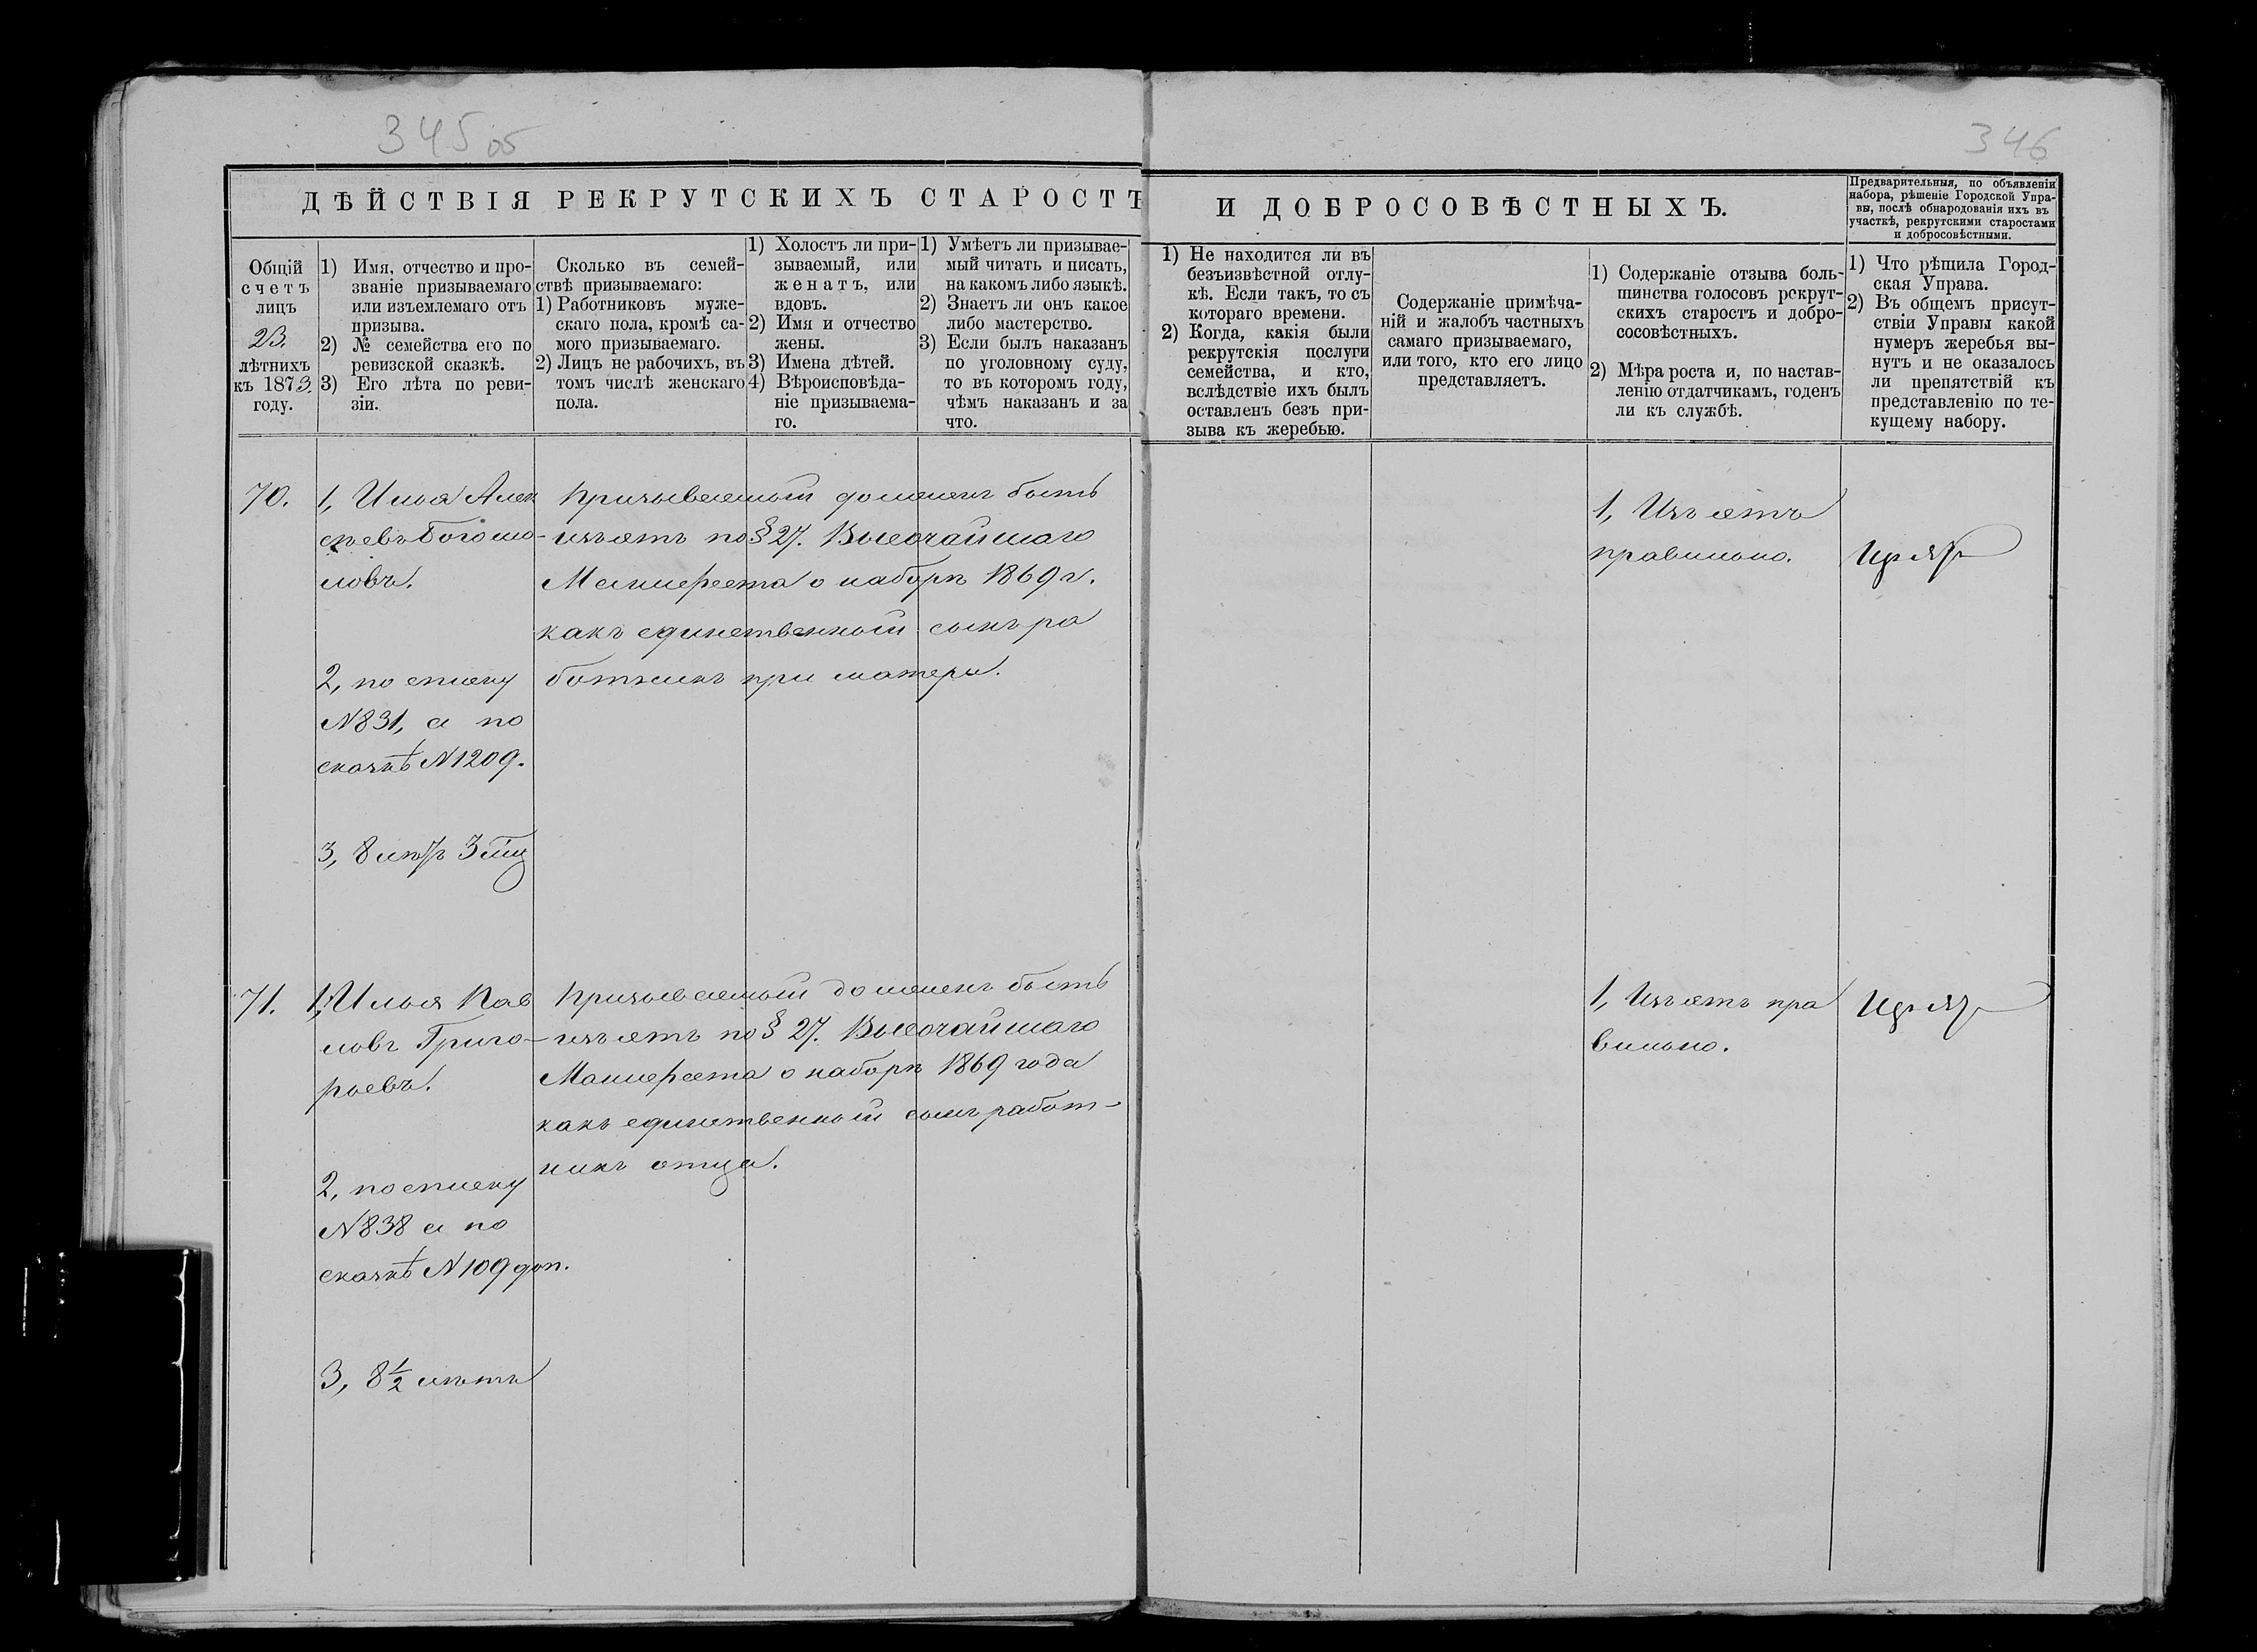 345 об
346
ДѢЙСТВІЯ РЕКРУТСКИХЪ СТАРОСТЪ
И ДОБРОСОВѢСТНЫХЪ.
Предварительныя, по объявленіи
набора, рѣшеніе Городской Упра-
вы, послѣ обнародованія ихъ въ
участкѣ, рекрутскими старостами
и добросовѣстными.
Общій
счетъ
лицъ
23.
лѣтнихъ
къ 1873.
году.
1) Имя, отчество и про-
званіе призываемаго
или изъемлемаго отъ
призыва.
2) № семейства его по
ревизской сказкѣ.
3) Его лѣта по реви-
зіи.
Сколько въ семей-
ствѣ призываемаго:
1) Работниковъ муже-
скаго пола, кромѣ са-
мого призываемаго.
2) Лицъ не рабочихъ, въ
томъ числѣ женскаго
пола.
1) Холостъ ли при-
зываемый, или
женатъ, или
вдовъ.
2) Имя и отчество
жены.
3) Имена дѣтей.
4) Вѣроисповѣда-
ніе призываема-
го.
1) Умѣетъ ли призывае-
мый читать и писать,
на какомъ либо языкѣ.
2) Знаетъ ли онъ какое
либо мастерство.
3) Если былъ наказанъ
по уголовному суду,
то въ которомъ году,
чѣмъ наказанъ и за
что.
1) Не находится ли въ
безъизвѣстной отлу-
кѣ. Если такъ, то съ
котораго времени.
2) Когда, какія были
рекрутскія послуги
семейства, и кто,
вслѣдствіе ихъ былъ
оставленъ безъ при-
зыва къ жеребью.
Содержаніе примѣча-
ній и жалобъ частныхъ
самаго призываемаго,
или того, кто его лицо
представляетъ.
1) Содержаніе отзыва боль-
шинства голосовъ рекрут-
скихъ старостъ и добро-
сосовѣстныхъ.
2) Мѣра роста и, по настав-
ленію отдатчикамъ, годенъ
ли къ службѣ.
1) Что рѣшила Город-
ская Управа.
2) Въ общемъ присут-
ствіи Управы какой
нумеръ жеребья вы-
нутъ и не оказалось
ли препятствій къ
представленію по те-
кущему набору.
70.
1, Илья Алек
сѣевъ Богомо-
ловъ.
2, по списку
№831, а по
сказкѣ №1209.
3, 8 лѣтъ 3
Призываемый долженъ быть
изъятъ по § 27. Высочайшаго
Манифеста о наборѣ 1869 г.
какъ единственный сынъ ра
ботникъ при матери.
1, Изъятъ
правильно.
71.
1, Илья Пав
ловъ Григо-
рьевъ.
2, по списку
№838 а по
сказкѣ №109 доп.
3, 8½ лѣтъ
Призываемый долженъ быть
изъятъ по § 27. Высочайшаго
Манифеста о наборѣ 1869 года
какъ единственный сынъ работ-
никъ отца.
1, Изъятъ пра
вильно.